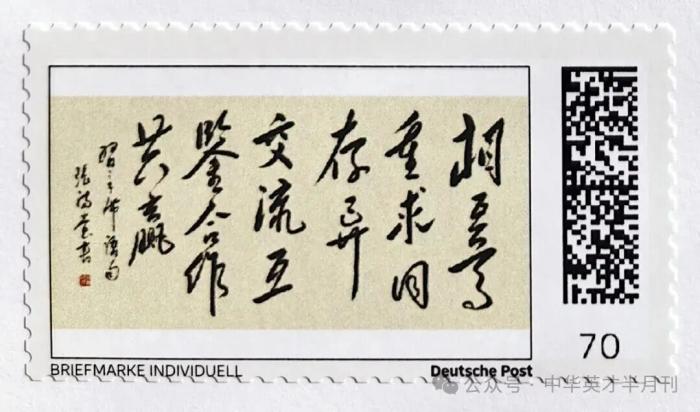 相互尊
重求同
存异
交流互
鑒合作
共赢
習主席語句
張 書
70
BRIEFMARKE INDIVIDUELL
Deutsche Post
公众号 · 中华英才半月刊